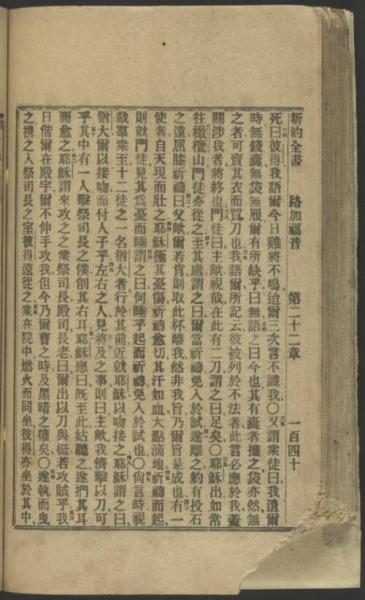 新約全書　路加福音　第二十二章　一百四十
死曰彼得我語爾今日雞將不鳴迨爾三次言不識我〇又謂衆徒曰我遣爾
時無錢囊無袋無履爾有所缺乎曰無語之曰今也其有囊者攜之袋亦然無
之者可賣其衣而買刀也我語爾所記云彼被列於不法者此言必應於我蓋
關涉我者將終也門徒曰主歟視哉在此有二刀謂之曰足矣〇耶穌出如常
往橄欖山門徒亦從之至其處謂之曰爾當祈禱免入於試遂離之約有投石
之遠屈膝祈禱曰父歟爾若肯則取此杯離我然非我旨乃爾旨是成也有一
使者自天現而壯之耶穌極其憂傷祈禱愈切其汗如血大點滴地祈禱而起
則就門徒見其爲憂而睡謂之曰何睡乎起而祈禱免入於試也〇尙言時視
哉羣衆至十二徒之一名猶大者行於其前近就耶穌以吻接之耶穌謂之曰
猶大爾以接吻而付人子乎左右之人見將及之事則曰主歟我儕擊以刀可
乎其中有一人擊祭司長之僕削其右耳耶穌應曰旣至此姑聽之遂捫其耳
而愈之耶穌謂來攻之之衆祭司長殿司長老曰爾出以刀與梃若攻賊乎我
日偕爾在殿宇爾不伸手攻我但今乃爾曹之時及黑暗之權矣〇遂執而曳
之攜之入祭司長之室彼得遠從之衆在院中燃火而同坐彼得亦坐於其中